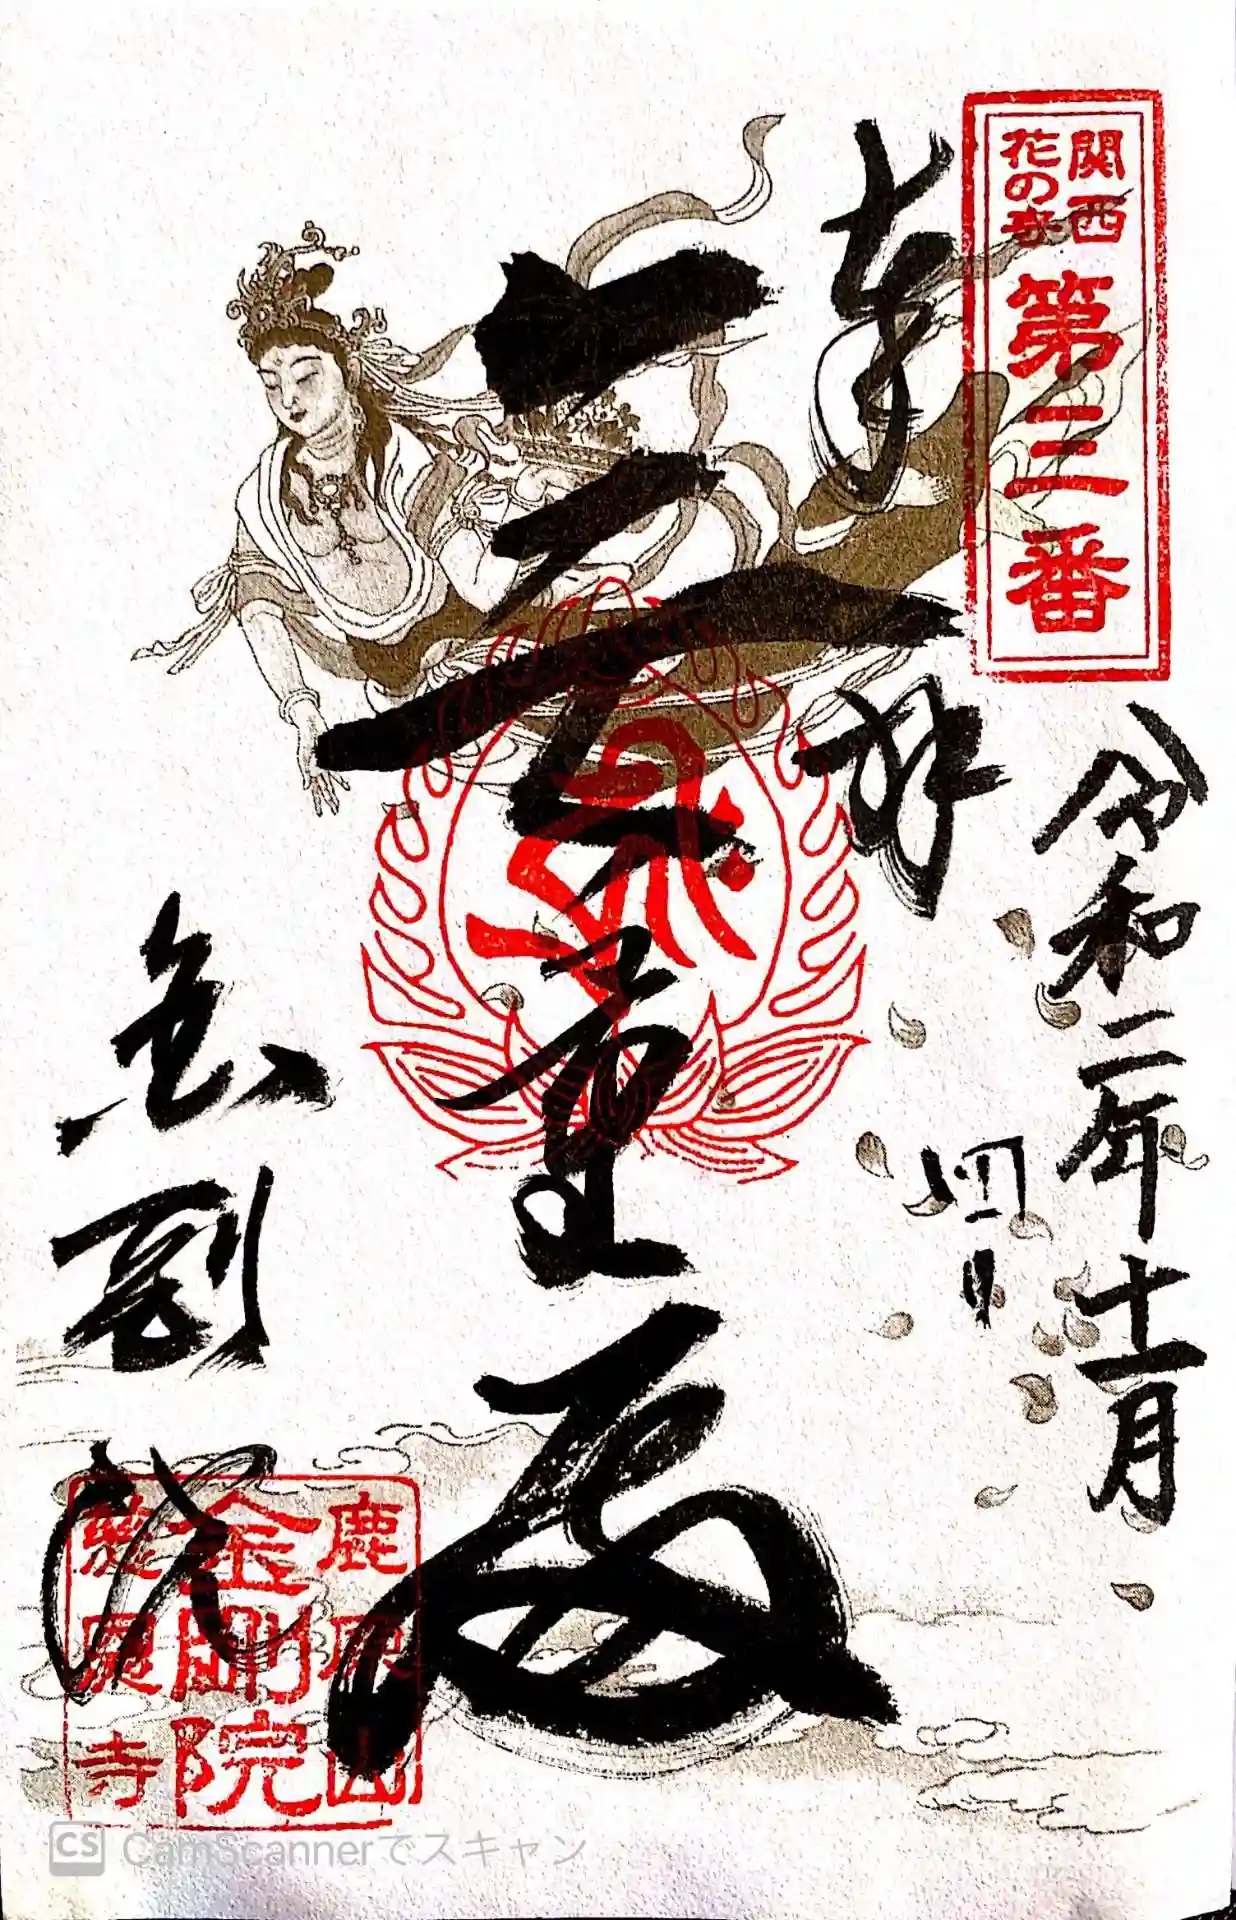 関西
花の寺
第三番
奉拝
令和二年十一月
四日
金剛院
鹿原山
金剛院
慈恩寺
CS CamScannerでスキャン